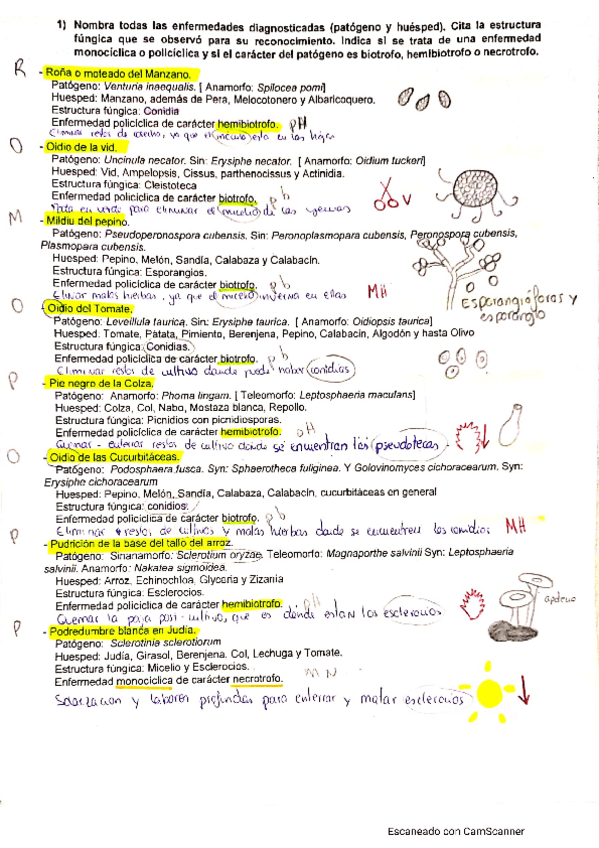 1) Nombra todas las enfermedades diagnosticadas (patógeno y huésped). Cita la estructura
fúngica que se observó para su reconocimiento. Indica si se trata de una enfermedad
monocíclica o policíclica y si el carácter del patógeno es biotrofo, hemibiotrofo o necrotrofo.
R - Roña o moteado del Manzano.
Patógeno: Venturia inaequalis. [ Anamorfo: Spilocea pomi]
Huesped: Manzano, además de Pera, Melocotonero y Albaricoquero.
Estructura fúngica: Conidia
Enfermedad policíclica de carácter hemibiotrofo. pH
Eliminar restos de cosecha, ya que el inoculo esta en las hojas
O - Oidio de la vid.
Patógeno: Uncinula necator. Sin: Erysiphe necator. [ Anamorfo: Oidium tuckeri]
Huesped: Vid, Ampelopsis, Cissus, parthenocissus y Actinidia.
Estructura fúngica: Cleistoteca
Enfermedad policíclica de carácter biotrofo. p b
Poda en verde para eliminar el micelio de las yemas
V
M - Mildiu del pepino.
Patógeno: Pseudoperonospora cubensis. Sin: Peronoplasmopara cubensis, Peronospora cubensis,
Plasmopara cubensis.
Huesped: Pepino, Melón, Sandía, Calabaza y Calabacín.
Estructura fúngica: Esporangios.
Enfermedad policíclica de carácter biotrofo. p b
Elimar malas hierbas, ya que el micelio inverna en ellas MH
Esporangióforos y
esporangio
O - Oidio del Tomate.
Patógeno: Leveillula taurica. Sin: Erysiphe taurica. [ Anamorfo: Oidiopsis taurica]
Huesped: Tomate, Pàtata, Pimiento, Berenjena, Pepino, Calabacín, Algodón y hasta Olivo
Estructura fúngica: Conidias.
Enfermedad policíclica de carácter biotrofo. p b
Eliminar restos de cultivo donde puede haber conidios
P - Pie negro de la Colza.
Patógeno: Anamorfo: Phoma lingam. [ Teleomorfo: Leptosphaeria maculans]
Huesped: Colza, Col, Nabo, Mostaza blanca, Repollo.
Estructura fúngica: Picnidios con picnidiosporas.
Enfermedad policíclica de carácter hemibiotrofo. pH
Quemar - enterrar restos de cultivo donde se encuentran las pseudotecas
O - Oidio de las Cucurbitáceas.
Patógeno: Podosphaera fusca. Syn: Sphaerotheca fuliginea. Y Golovinomyces cichoracearum. Syn:
Erysiphe cichoracearum
Huesped: Pepino, Melón, Sandía, Calabaza, Calabacín, cucurbitáceas en general
Estructura fúngica: conidios.
Enfermedad policíclica de carácter biotrofo. p b
Eliminar restos de cultivos y malas hierbas donde se encuentren los conidios MH
P - Pudrición de la base del tallo del arroz.
Patógeno: Sinanamorfo: Sclerotium oryzae. Teleomorfo: Magnaporthe salvinii Syn: Leptosphaeria
salvinii. Anamorfo: Nakatea sigmoidea.
Huésped: Arroz, Echinochloa, Glyceria y Zizania
Estructura fúngica: Esclerocios.
Enfermedad policíclica de carácter hemibiotrofo. pH
Quemar la paja post-cultivo, que es donde estan los esclerocios
P - Podredumbre blanca en Judía.
Patógeno: Sclerotinia sclerotiorum
Huesped: Judía, Girasol, Berenjena, Col, Lechuga y Tomate.
Estructura fúngica: Micelio y Esclerocios.
Enfermedad monocíclica de carácter necrotrofo. M N
Solarizacion y labores profundas para enterrar y matar esclerocios
Escaneado con CamScanner